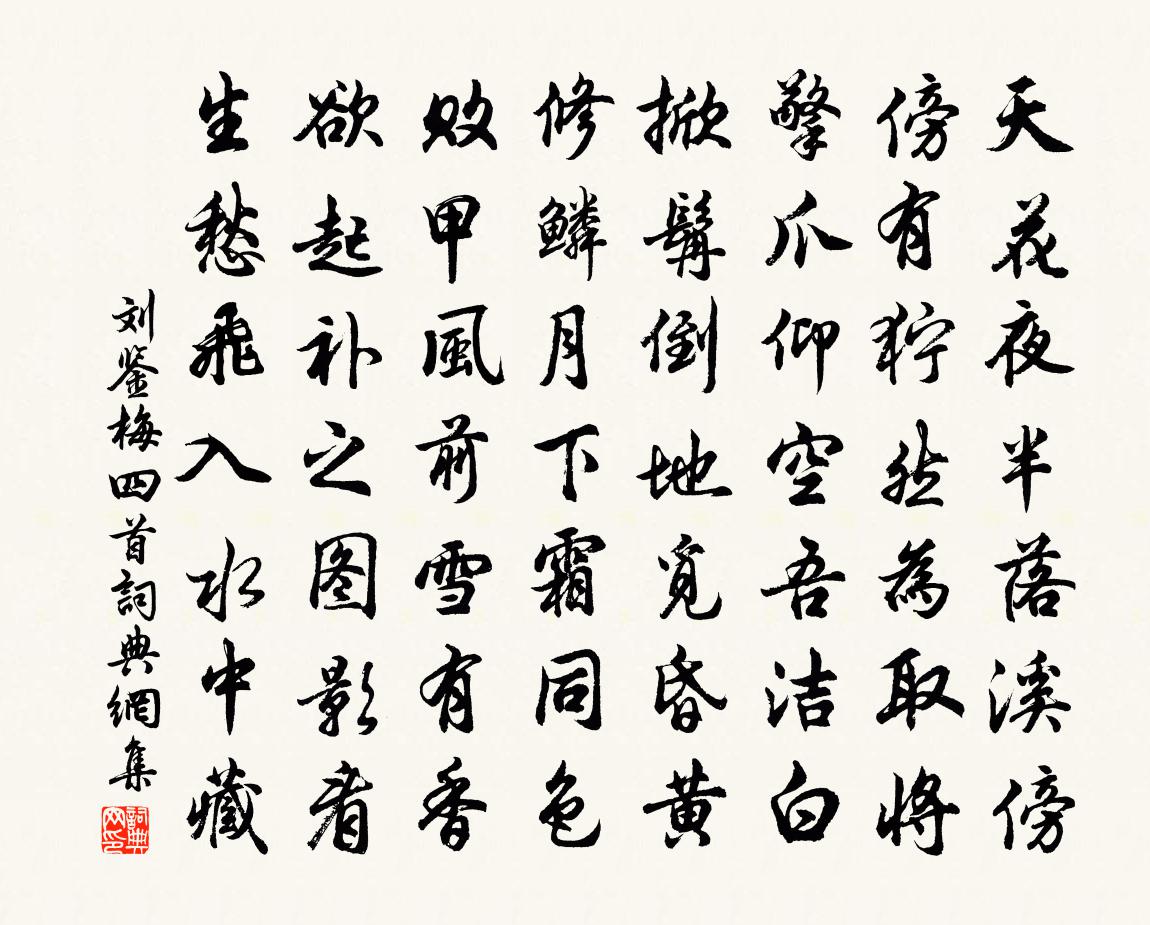 天花夜半落溪傍
傍有狞然為取將
擎爪仰空吾洁白
掀髯倒地觅昏黄
修鳞月下霜同色
败甲風前雪有香
欲起补之图影看
生愁飛入水中藏
刘鉴梅四首詞典網集